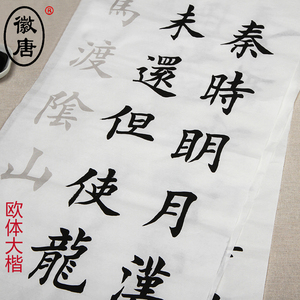 徽唐
®
秦時明月漢
未還但使龍
馬渡陰山
欧体大楷